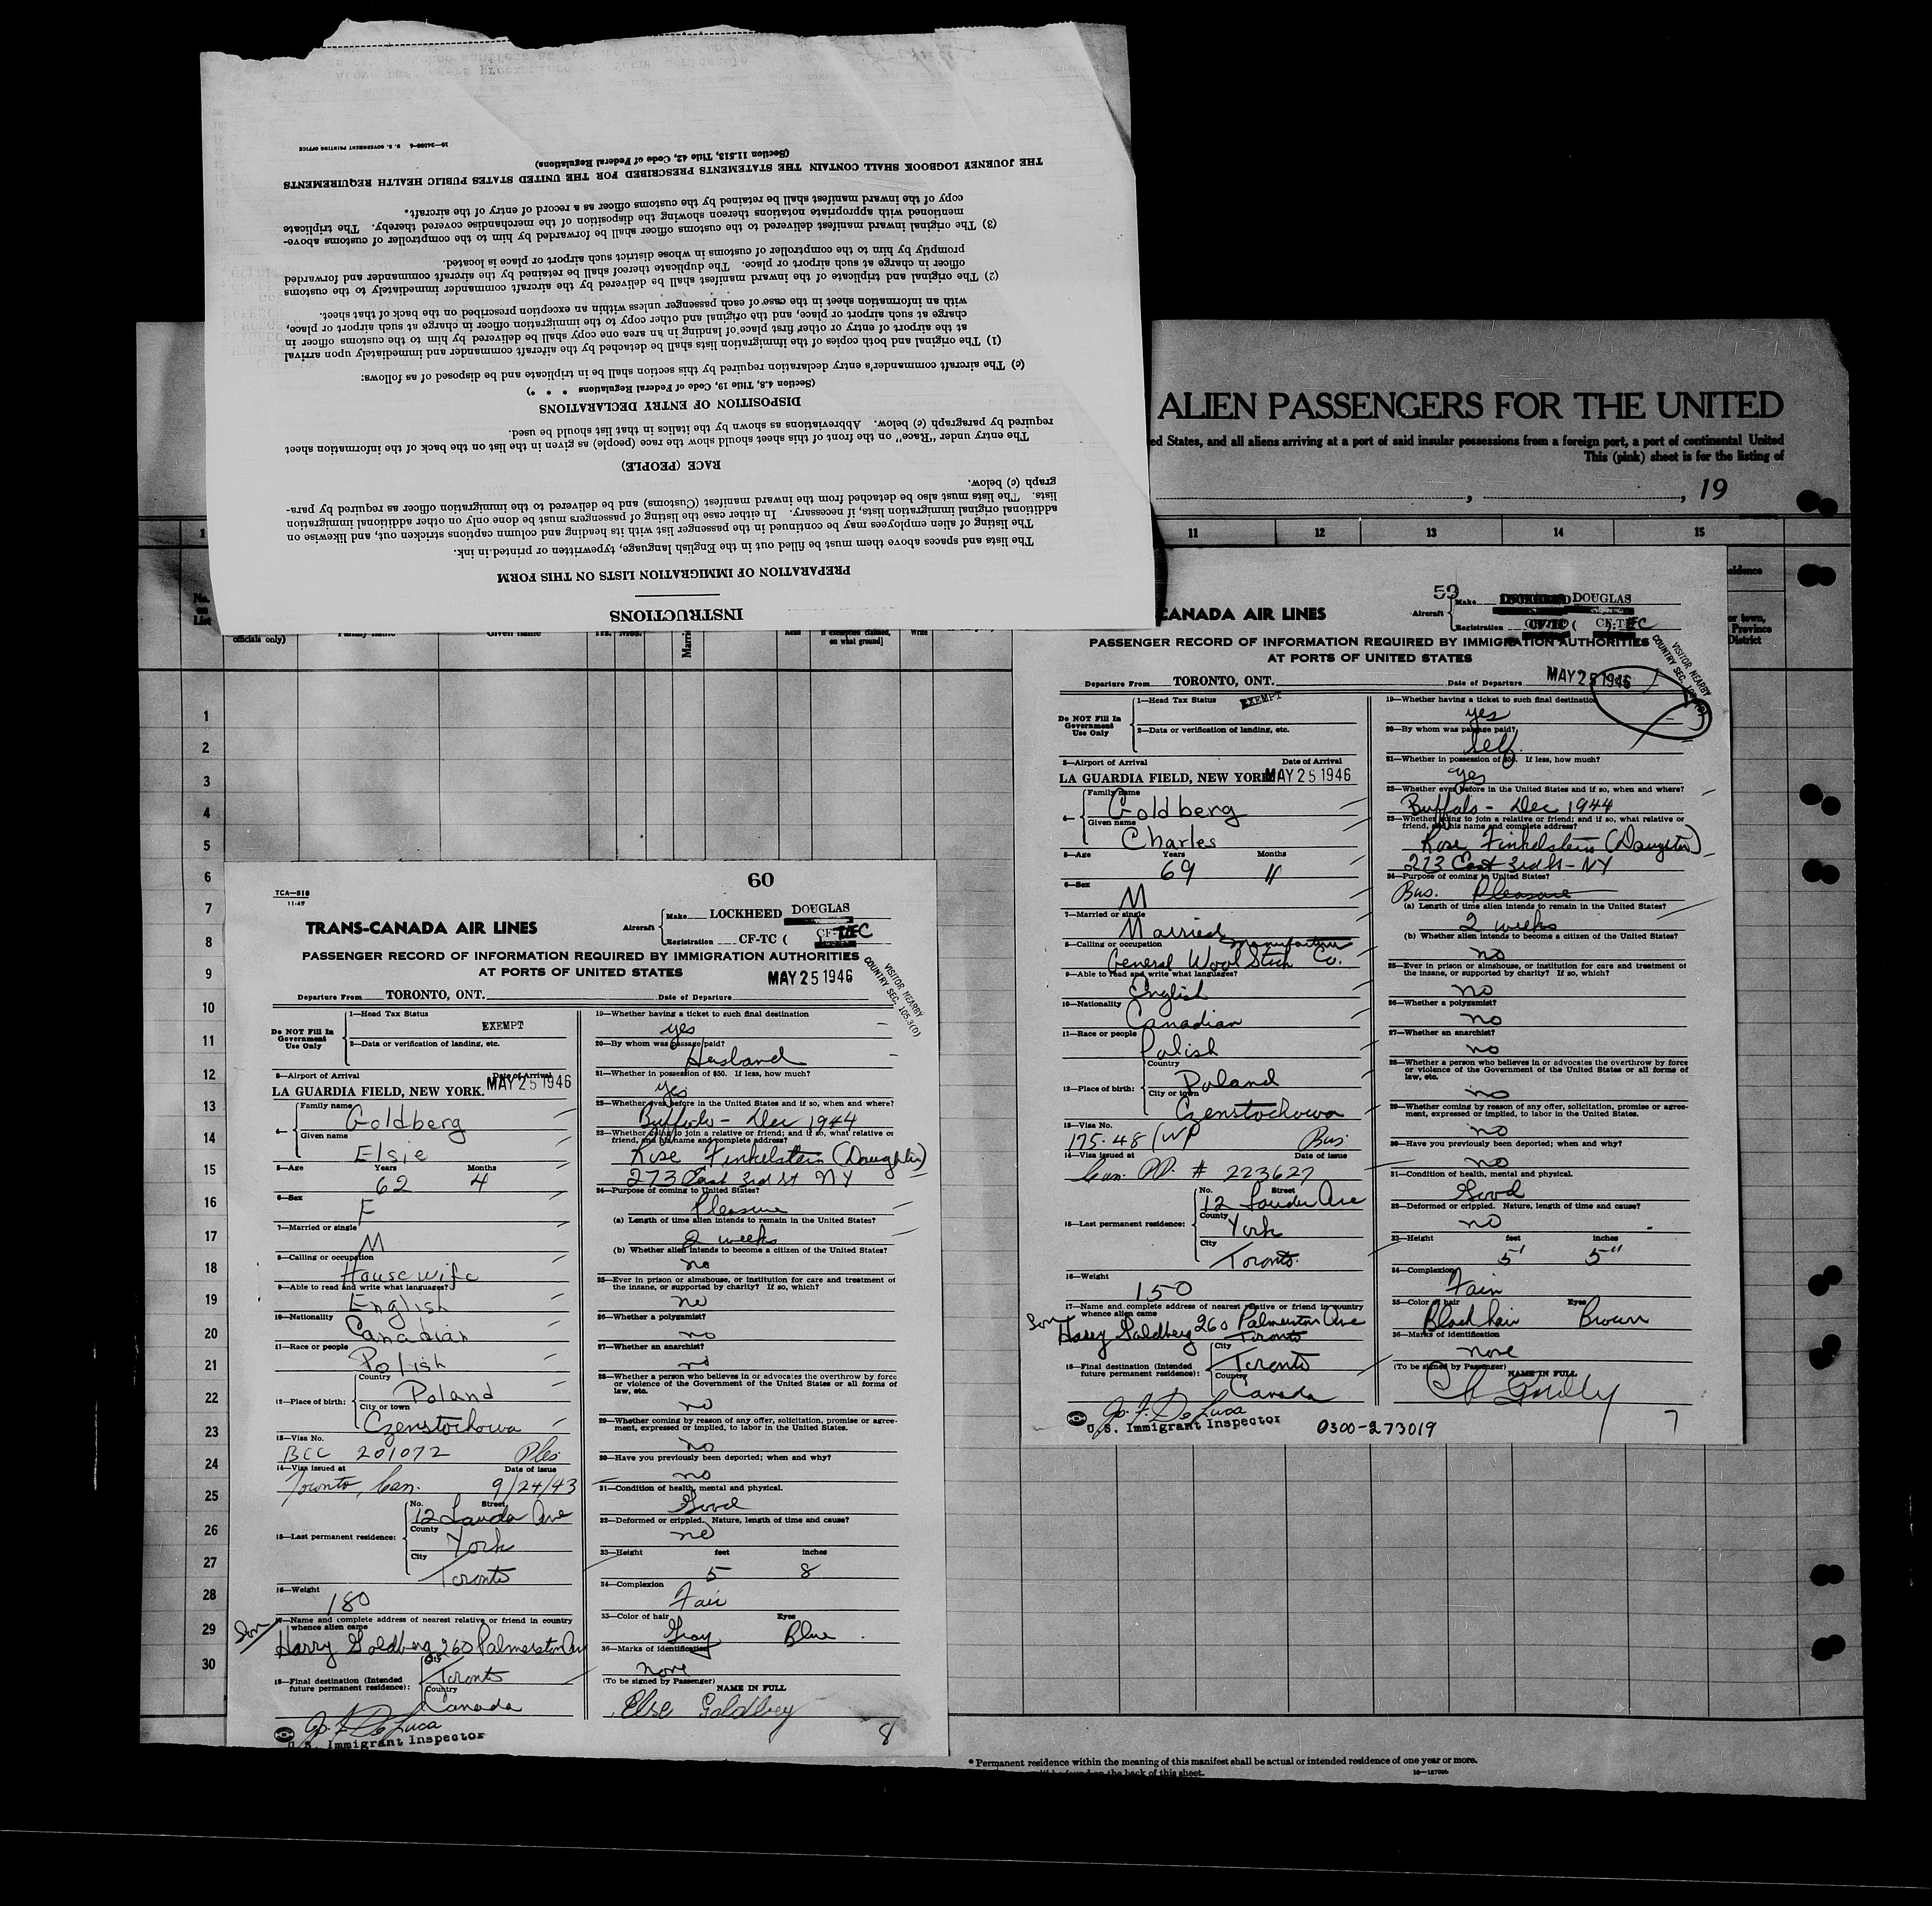 INSTRUCTIONS
PREPARATION OF IMMIGRATION LISTS ON THIS FORM
The lists and spaces above them must be filled out in the English language, typewritten or printed in ink.
The listing of alien employees may be continued in the passenger list with its heading and column captions stricken out, and likewise on
additional original immigration lists, if necessary. In either case the listing of passengers must be done only on other additional immigration
lists. The lists must also be detached from the inward manifest (Customs) and be delivered to the immigration officer as required by para-
graph (c) below.
RACE (PEOPLE)
The entry under "Race" on the front of this sheet should show the race (people) as given in the list on the back of the information sheet
required by paragraph (c) below. Abbreviations as shown by the italics in that list should be used.
DISPOSITION OF ENTRY DECLARATIONS
(Section 4.8, Title 19, Code of Federal Regulations * * *)
(c) The aircraft commander's entry declaration required by this section shall be in triplicate and be disposed of as follows:
(1) The original and both copies of the immigration lists shall be detached by the aircraft commander and immediately upon arrival
at the airport of entry or other first place of landing in an area one copy shall be delivered by him to the customs officer in
charge at such airport or place, and the original and other copy to the immigration officer in charge at such airport or place,
with an information sheet in the case of each passenger unless within an exception prescribed on the back of that sheet.
(2) The original and triplicate of the inward manifest shall be delivered by the aircraft commander immediately to the customs
officer in charge at such airport or place. The duplicate thereof shall be retained by the aircraft commander and forwarded
promptly by him to the comptroller of customs in whose district such airport or place is located.
(3) The original inward manifest delivered to the customs officer shall be forwarded by him to the comptroller of customs above-
mentioned with appropriate notations thereon showing the disposition of the merchandise covered thereby. The triplicate
copy of the inward manifest shall be retained by the customs officer as a record of entry of the aircraft.
THE JOURNEY LOGBOOK SHALL CONTAIN THE STATEMENTS PRESCRIBED FOR THE UNITED STATES PUBLIC HEALTH REQUIREMENTS
(Section 11.513, Title 42, Code of Federal Regulations)
U. S. GOVERNMENT PRINTING OFFICE
ALIEN PASSENGERS FOR THE UNITED
ed States, and all aliens arriving at a port of said insular possessions from a foreign port, a port of continental United
This (pink) sheet is for the listing of
, , 19
11 12 13 14 15
No. on List
officials only) Family name Given name Yrs. Mos. Read Write
1
2
3
4
5
6
7
8
9
10
11
12
13
14
15
16
17
18
19
20
21
22
23
24
25
26
27
28
29
30
60
TCA—518
11-45
TRANS-CANADA AIR LINES
Aircraft Make LOCKHEED DOUGLAS
Registration CF-TC (
PASSENGER RECORD OF INFORMATION REQUIRED BY IMMIGRATION AUTHORITIES
AT PORTS OF UNITED STATES
MAY 25 1946
VISITOR NEARBY
COUNTRY SEC. 105.3(D)
Departure From TORONTO, ONT. Date of Departure
Do NOT Fill In Government Use Only
1—Head Tax Status EXEMPT
2—Data or verification of landing, etc.
3—Airport of Arrival Date of Arrival
LA GUARDIA FIELD, NEW YORK. MAY 25 1946
4— Family name Goldberg
Given name Elsie
5—Age Years 62 Months 4
6—Sex F
7—Married or single M
8—Calling or occupation Housewife
9—Able to read and write what languages? English
10—Nationality Canadian
11—Race or people Polish
12—Place of birth: Country Poland
City or town Czenstochowa
13—Visa No. BCC 201072 Ples
14—Visa issued at Date of issue
Toronto, Can. 9/24/43
15—Last permanent residence: No. Street 12 Lauda Ave
County York
City Toronto
16—Weight 180
17—Name and complete address of nearest relative or friend in country
whence alien came
Son Harry Goldberg 260 Palmerston Av
18—Final destination (Intended future permanent residence): City Toronto
Country Canada
Jo. F. De Luca
U.S. Immigrant Inspector
19—Whether having a ticket to such final destination
yes
20—By whom was passage paid?
Husband
21—Whether in possession of $50. If less, how much?
yes
22—Whether ever before in the United States and if so, when and where?
Buffalo - Dec 1944
23—Whether going to join a relative or friend; and if so, what relative or
friend, and his name and complete address?
Rose Finkelstein (Daughter)
273 East 3rd St NY
24—Purpose of coming to United States?
Pleasure
(a) Length of time alien intends to remain in the United States?
2 weeks
(b) Whether alien intends to become a citizen of the United States?
no
25—Ever in prison or almshouse, or institution for care and treatment of
the insane, or supported by charity? If so, which?
no
26—Whether a polygamist?
no
27—Whether an anarchist?
no
28—Whether a person who believes in or advocates the overthrow by force
or violence of the Government of the United States or all forms of
law, etc.
no
29—Whether coming by reason of any offer, solicitation, promise or agree-
ment, expressed or implied, to labor in the United States.
no
30—Have you previously been deported; when and why?
no
31—Condition of health, mental and physical.
Good
32—Deformed or crippled. Nature, length of time and cause?
no
33—Height feet 5 inches 8
34—Complexion
Fair
35—Color of hair Gray Eyes Blue
36—Marks of identification
none
(To be signed by Passenger) NAME IN FULL
Else Goldberg
8
59
CANADA AIR LINES
Aircraft Make DOUGLAS
Registration
PASSENGER RECORD OF INFORMATION REQUIRED BY IMMIGRATION AUTHORITIES
AT PORTS OF UNITED STATES
VISITOR NEARBY
COUNTRY SEC.
Departure From TORONTO, ONT. Date of Departure MAY 25 1946
Do NOT Fill In Government Use Only
1—Head Tax Status EXEMPT
2—Data or verification of landing, etc.
3—Airport of Arrival Date of Arrival
LA GUARDIA FIELD, NEW YORK MAY 25 1946
4— Family name Goldberg
Given name Charles
5—Age Years 69 Months 11
6—Sex M
7—Married or single Married
8—Calling or occupation Manufacturer
General Wool Stock Co.
9—Able to read and write what languages? English
10—Nationality Canadian
11—Race or people Polish
12—Place of birth: Country Poland
City or town Czenstochowa
13—Visa No. 175.48 (WP Bus.
14—Visa issued at Date of issue
Can. PP. # 223627
15—Last permanent residence: No. Street 12 Lauder Ave
County York
City Toronto
16—Weight 150
17—Name and complete address of nearest relative or friend in country
whence alien came
Son Harry Goldberg 260 Palmerston Ave
Toronto
18—Final destination (Intended future permanent residence): City Toronto
Country Canada
Jo. F. De Luca
U.S. Immigrant Inspector
0300-273019
19—Whether having a ticket to such final destination
yes
20—By whom was passage paid?
self.
21—Whether in possession of $50. If less, how much?
yes
22—Whether ever before in the United States and if so, when and where?
Buffalo - Dec 1944
23—Whether going to join a relative or friend; and if so, what relative or
friend, and his name and complete address?
Rose Finkelstein (Daughter)
273 East 3rd St - NY
24—Purpose of coming to United States?
Bus. Pleasure
(a) Length of time alien intends to remain in the United States?
2 weeks
(b) Whether alien intends to become a citizen of the United States?
no
25—Ever in prison or almshouse, or institution for care and treatment of
the insane, or supported by charity? If so, which?
no
26—Whether a polygamist?
no
27—Whether an anarchist?
no
28—Whether a person who believes in or advocates the overthrow by force
or violence of the Government of the United States or all forms of
law, etc.
no
29—Whether coming by reason of any offer, solicitation, promise or agree-
ment, expressed or implied, to labor in the United States.
no
30—Have you previously been deported; when and why?
no
31—Condition of health, mental and physical.
Good
32—Deformed or crippled. Nature, length of time and cause?
no
33—Height feet 5' inches 5"
34—Complexion
Fair
35—Color of hair Black hair Eyes Brown
36—Marks of identification
none
(To be signed by Passenger) NAME IN FULL
7
* Permanent residence within the meaning of this manifest shall be actual or intended residence of one year or more.
on the back of this sheet.